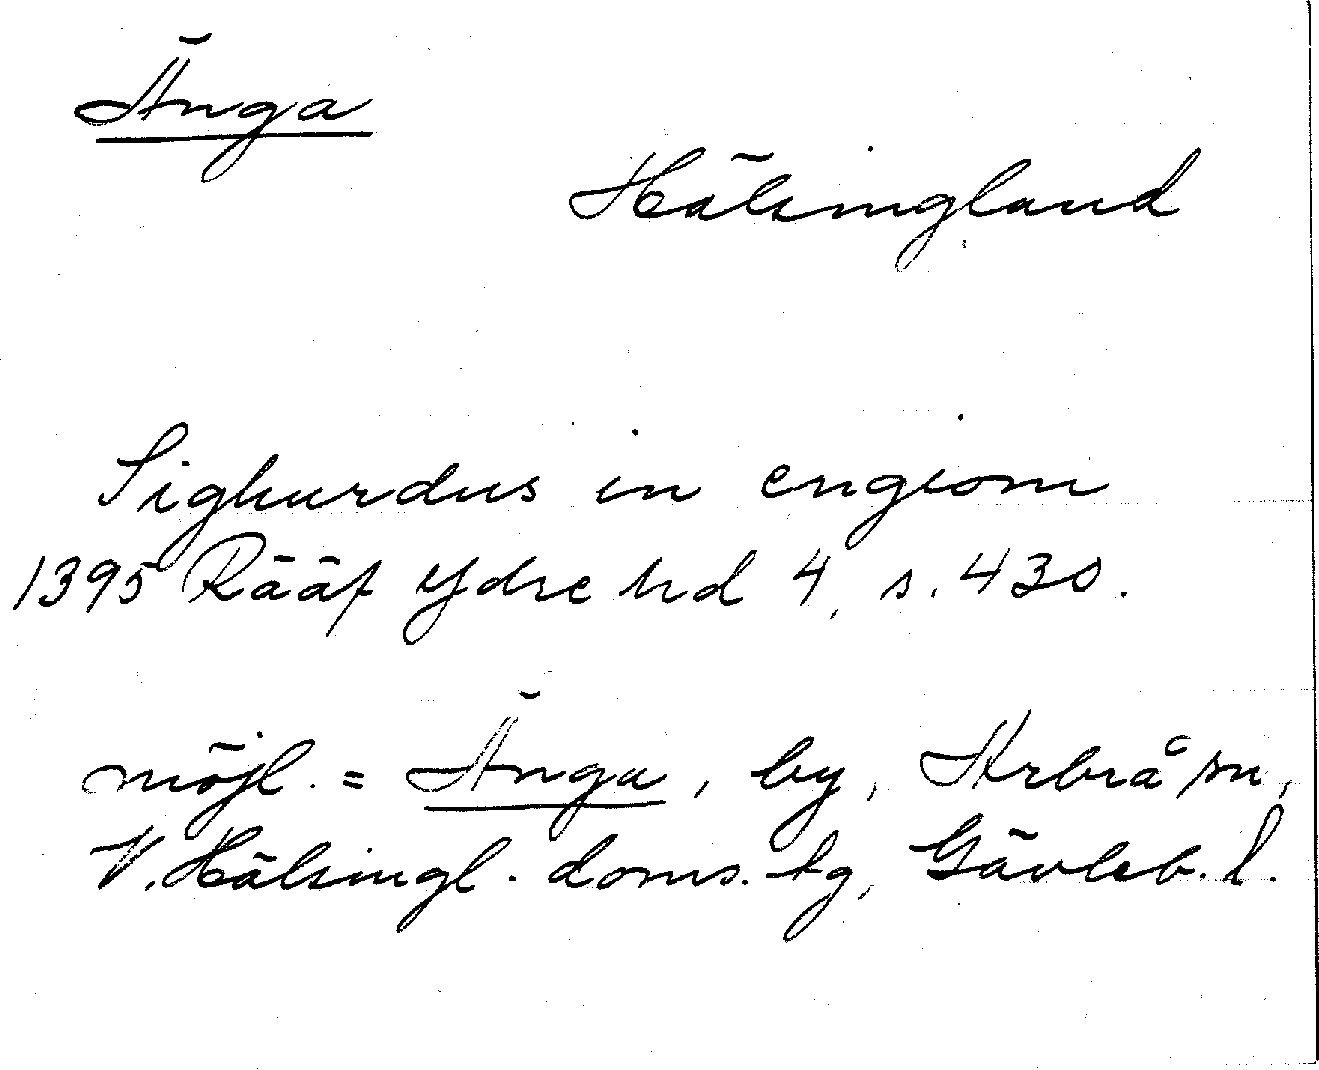 Änga
Hälsingland
Sighurdus in engiom
1395 Rääf Ydre hd 4, s. 430.
möjl. = Änga, by, Arbrå sn,
V. Hälsingl. doms. tg, Gävleb. l.